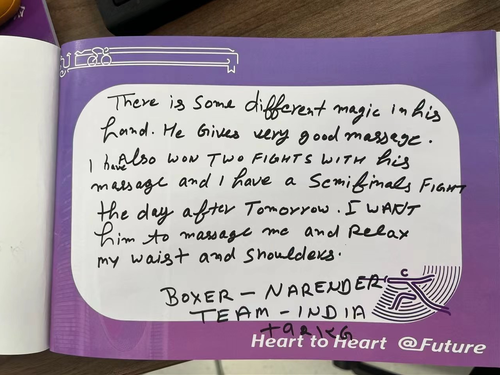 There is some different magic in his
hand. He Gives very good massage.
I have Also WON TWO FIGHTS WITH his
massage and I have a Semifinals FIGHT
the day after Tomorrow. I WANT
him to massage me and Relax
my waist and shoulders.
BOXER - NARENDER
TEAM - INDIA
+92KG
Heart to Heart @Future